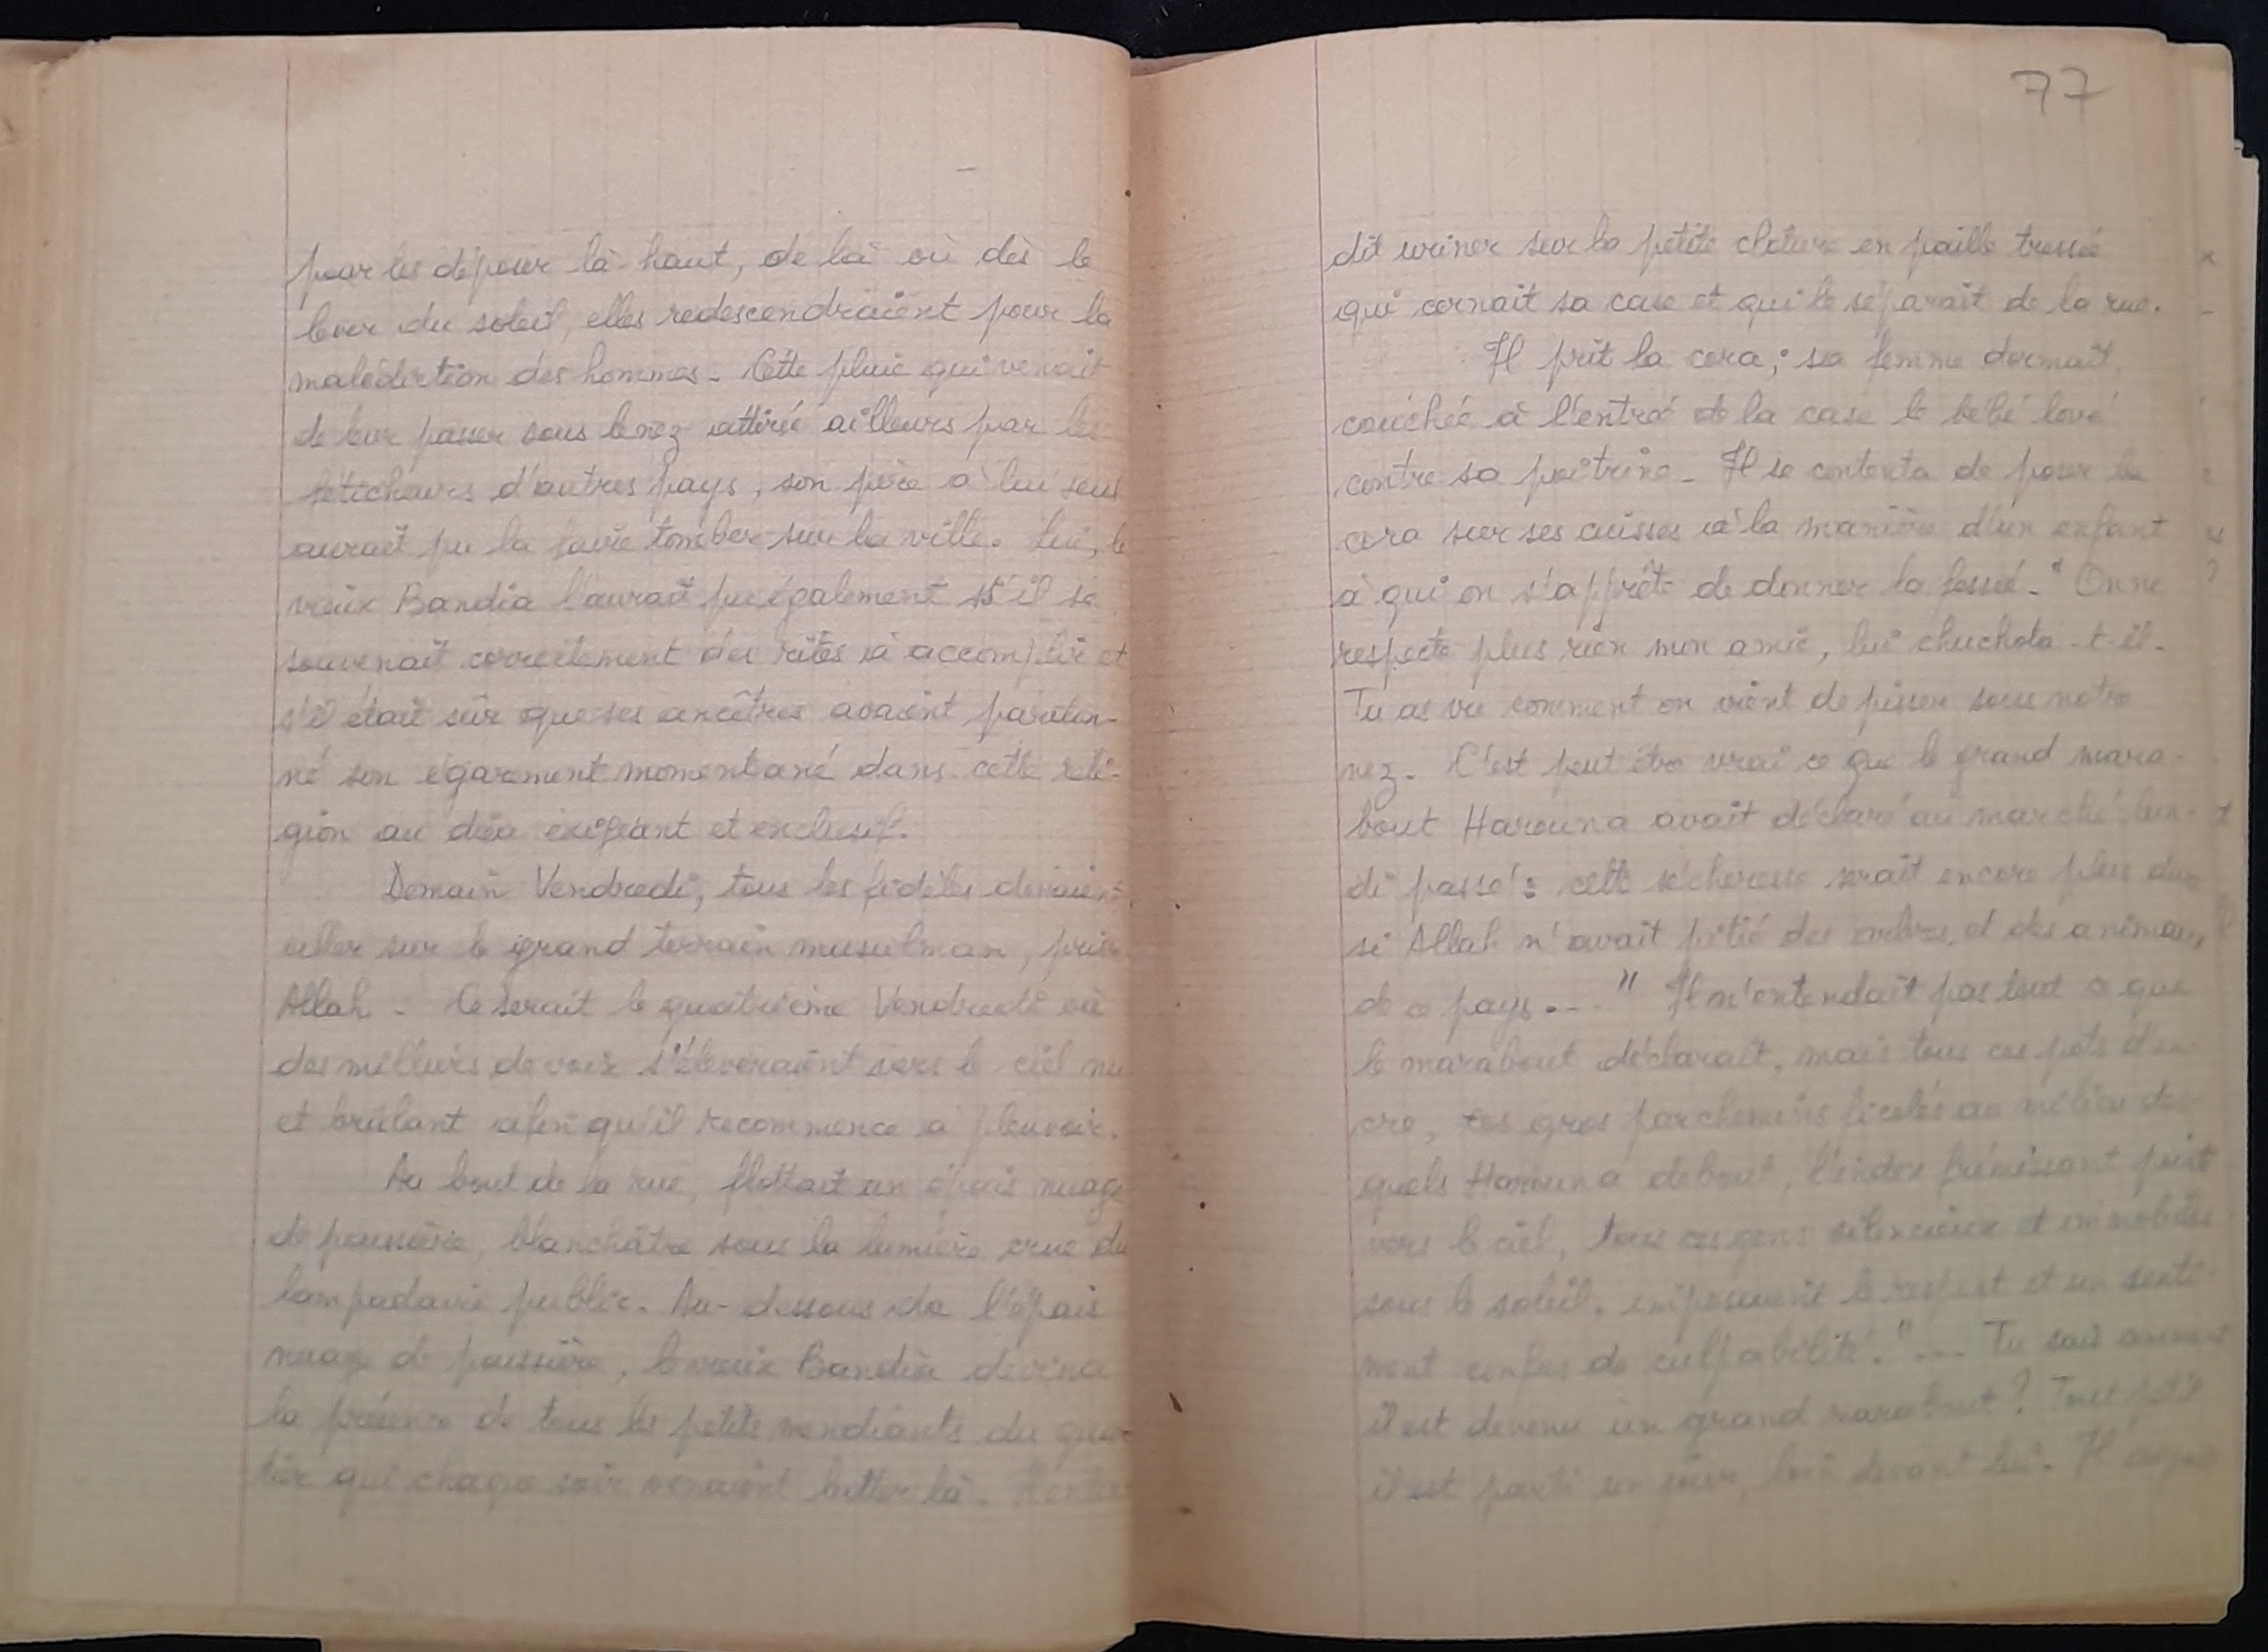 pour les déposer là-haut, de là où dès le
lever du soleil, elles redescendraient pour la
malédiction des hommes. Cette pluie qui venait
de leur passer sous le nez attirée ailleurs par les
féticheurs d'autres pays, son père à lui seul
aurait pu la faire tomber sur la ville. Lui, le
vieux Bandia l'aurait pu également s'il se
souvenait correctement des rites à accomplir et
s'il était sûr que ses ancêtres avaient pardon-
né son égarement momentané dans cette reli-
gion au dieu exigeant et exclusif.
Demain Vendredi, tous les fidèles devaient
aller sur le grand terrain musulman, prier
Allah. Ce serait le quatrième Vendredi où
des milliers de voix s'élèveraient vers le ciel nu
et brûlant afin qu'il recommence à pleuvoir.
Au bout de la rue, flottait un épais nuage
de poussière, blanchâtre sous la lumière crue du
lampadaire public. Au-dessous de l'épais
nuage de poussière, le vieux Bandia devina
la présence de tous les petits mendiants du quar-
tier qui chaque soir venaient lutter là. Il enten
77
dit uriner sur la petite cloture en paille tressée
qui cernait sa case et qui le séparait de la rue.
Il prit la cora; sa femme dormait,
couchée à l'entrée de la case le bébé lové
contre sa poitrine. Il se contenta de poser la
cora sur ses cuisses à la manière d'un enfant
à qui on s'apprête de donner la fessée. "On ne
respecte plus rien mon amie, lui chuchota-t-il.
Tu as vu comment on vient de pisser sous notre
nez. C'est peut être vrai ce que le grand mara-
bout Harouna avait déclaré au marché lun-
di passé: cette sécheresse serait encore plus dure
si Allah n'avait pitié des arbres et des animaux
de ce pays..." Il n'entendait pas tout ce que
le marabout déclarait, mais tous ces pots d'en-
cre, ces gros parchemins ficelés au milieu des-
quels Harouna debout, l'index frémissant
vers le ciel, tous ces gens silencieux et immobiles
sous le soleil, imposaient le respect et un senti-
ment confus de culpabilité. "... Tu sais comment
il est devenu un grand marabout? Tout petit
il est parti un jour, loin devant lui. Il